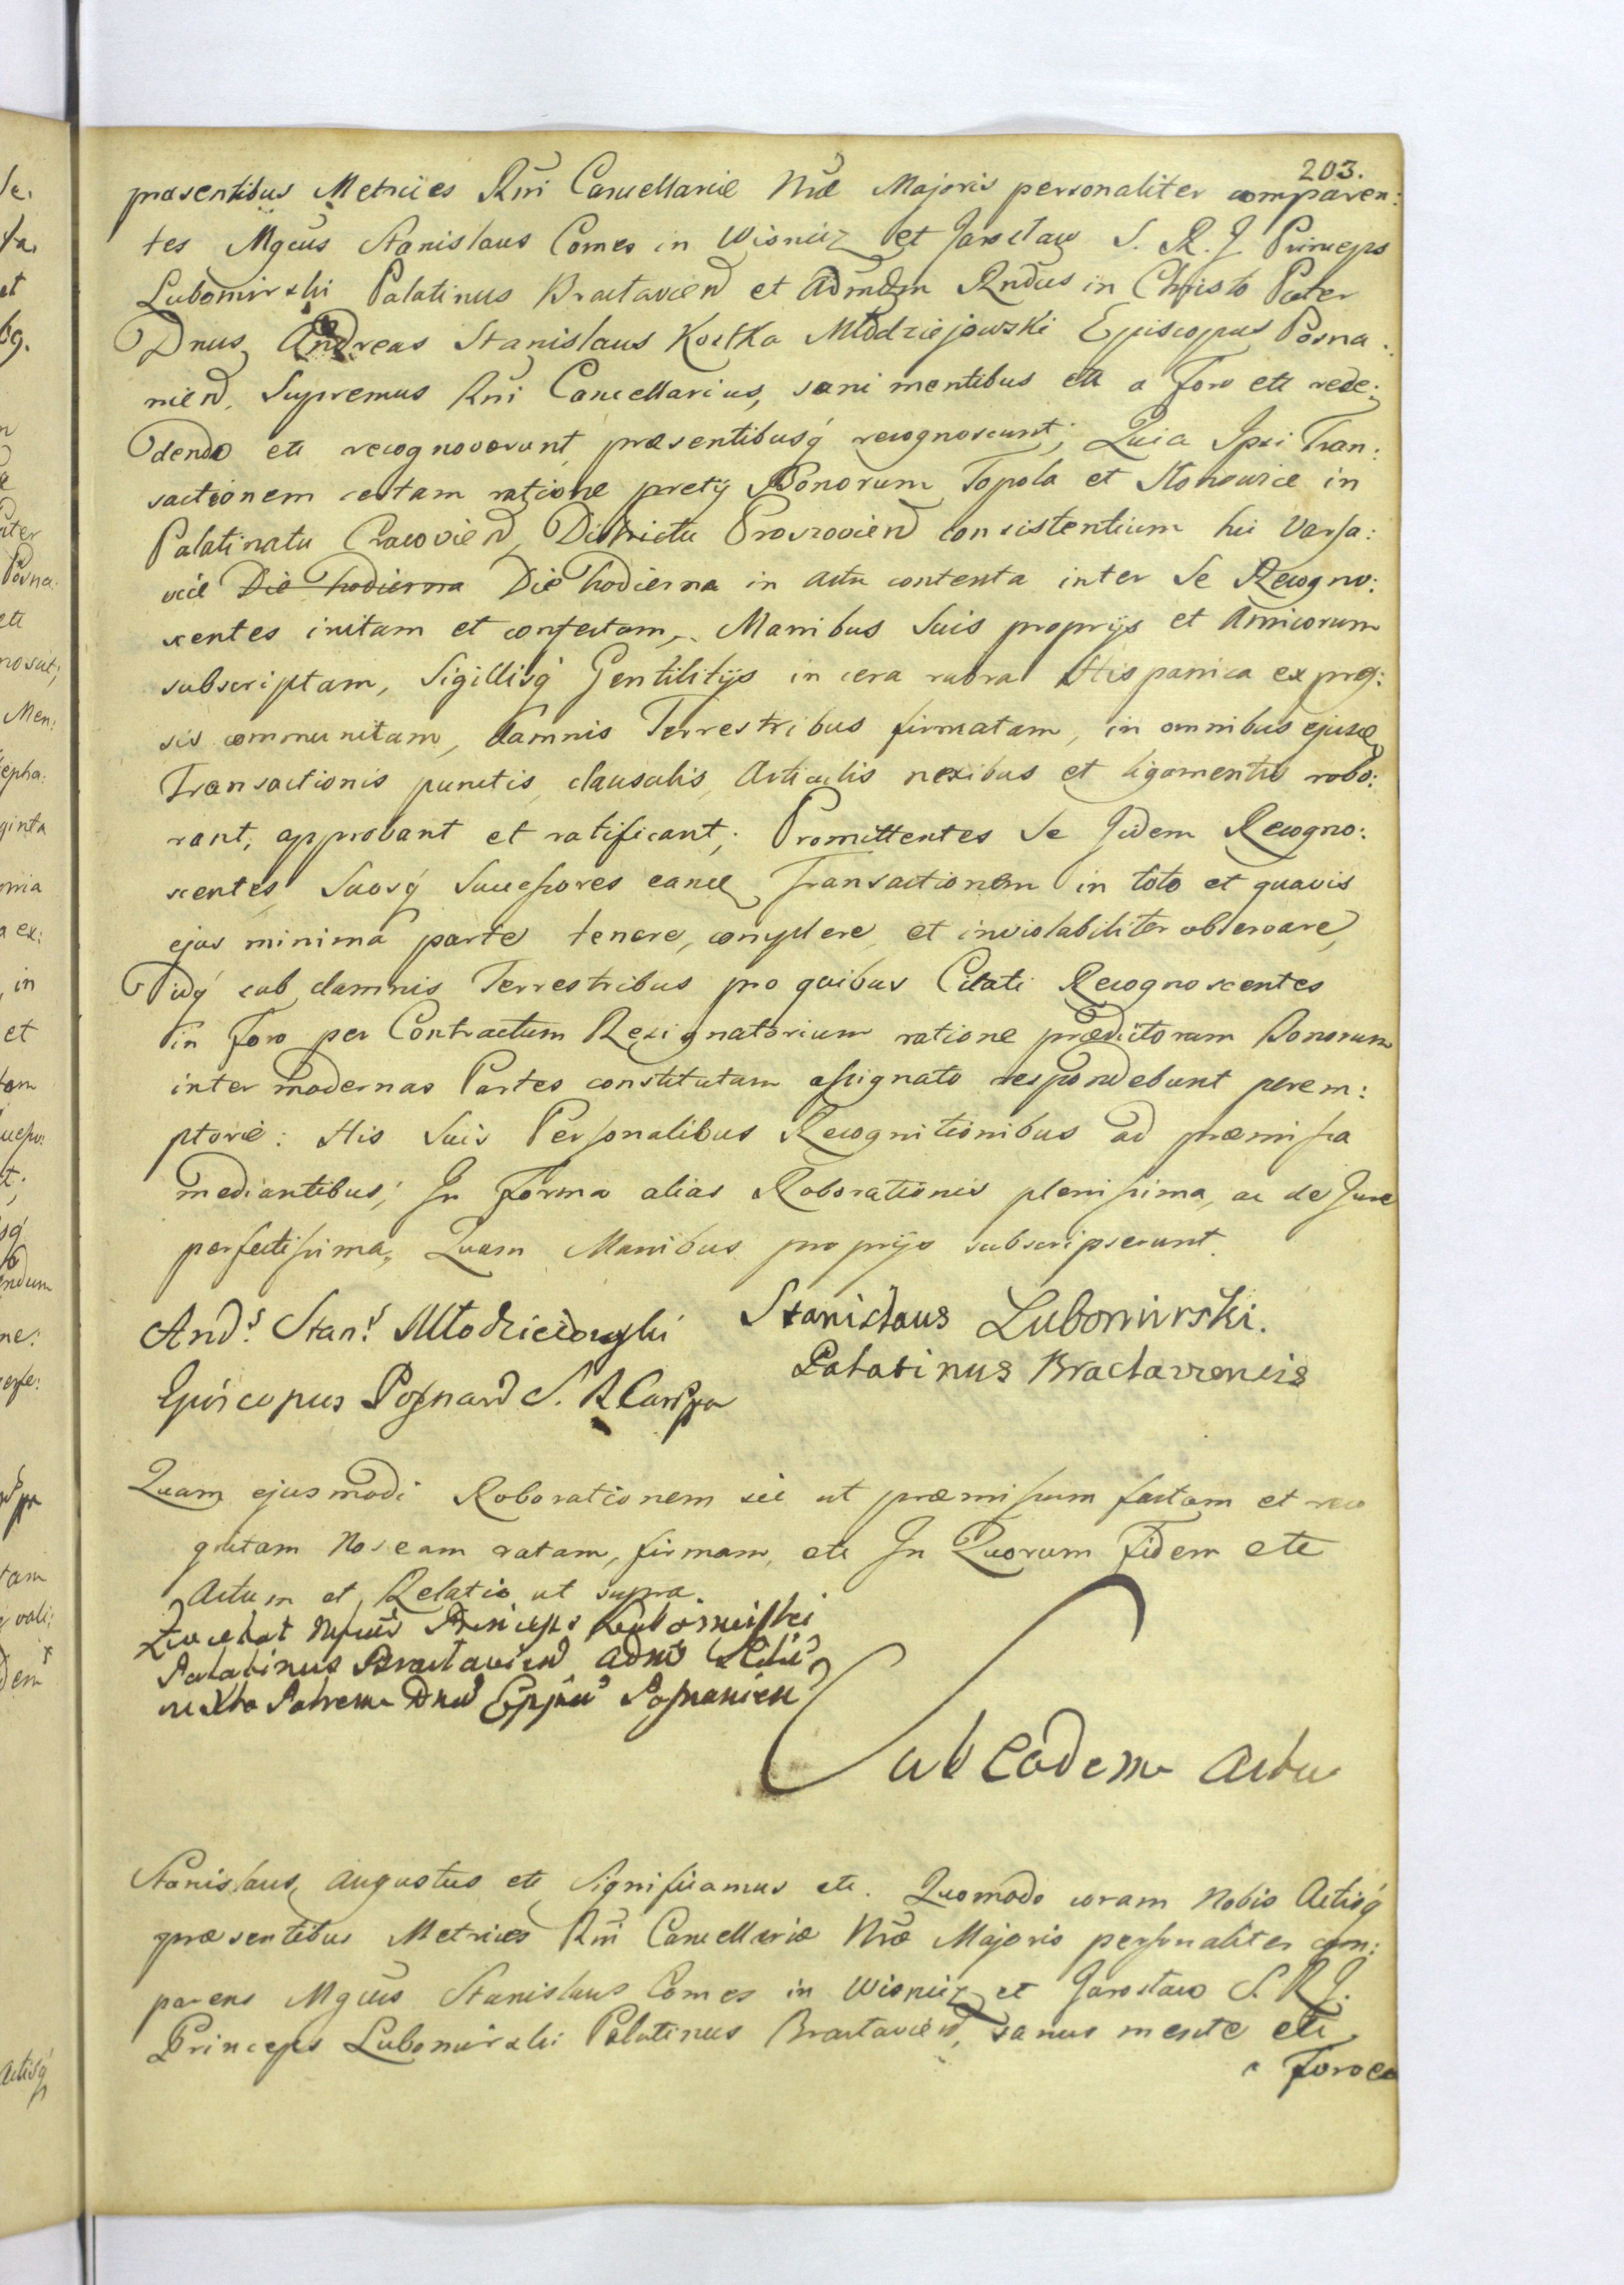 203.
præsentibus Metrices Rñi Cancellariæ Nræ Majoris personaliter comparen:
tes Mgcus Stanislaus Comes in Wisnicz et Jarosław S. R. J. Princeps
Lubomirski Palatinus Bractavień et Admdm Rndus in Christo Pater
Dnus Andreas Stanislaus Kostka Młodziejowski Episcopus Posna:
nień, Supremus Rñi Cancellarius, sani mentibus etc a Foro etc rece:
dendo etc recognoverunt præsentibusq́ recognoscunt; Quia Ipsi Tran:
sactionem certam ratione pretij Bonorum Topola et Stonowice in
Palatinatu Cracovień, Districtu Proszovień consistentium hic Varsa:
viæ Die hodierna Die hodierna in actu contenta inter Se Recogno:
scentes initam et confectam, Manibus Suis proprijs et Amicorum
subscriptam, Sigillisq́ Gentilitijs in cera rubra Hispanica expres:
sis communitam, damnis Terrestribus firmatam, in omnibus ejusd
Transactionis punctis, clausulis, Articulis nexibus et ligamentis robo:
rant, approbant et ratificant; Promittentes Se Iidem Recogno:
scentes Suosq́ Successores eand Transactionem in toto et quavis
ejus minima parte tenere, complere et inviolabiliter observare,
idq́ sub damnis Terrestribus pro quibus Citati Recognoscentes
in Foro per Contractum Resignatorium ratione prædictorum Bonorum
inter modernas Partes constitutam assignato respondebunt perem:
ptorie: His Suis Personalibus Recognitionibus ad præmissa
mediantibus; In Forma alias Roborationis plenissima, ac de Jure
perfectissima, Quam Manibus proprijs subscripserunt.
Ands. Stans. Młodzieiowski Stanislaus Lubomirski.
Episcopus Posnań S. R Palatinus Bractaviensis
Quam ejusmodi Roborationem sic ut præmissum factam et reco
gnitam Nos eam ratam, firmam, etc In Quorum Fidem etc
Actum et Relatio ut supra.
Princeps Lubomirski
Palatinus Bractavień Adm
in Xto Patrem Dnu Eppu Posnanień
Sub Eadem Actu
Stanislaus Augustus etc Significamus etc. Quomodo coram Nobis Actisq́
præsentibus Metrices Rñi Cancellariæ Nræ Majoris personaliter com:
parens Mgcus Stanislaus Comes in Wisnicz et Jarosław S. R. J.
Princeps Lubomirski Palatinus Bractavień, sanus mente etc
a Foro etc